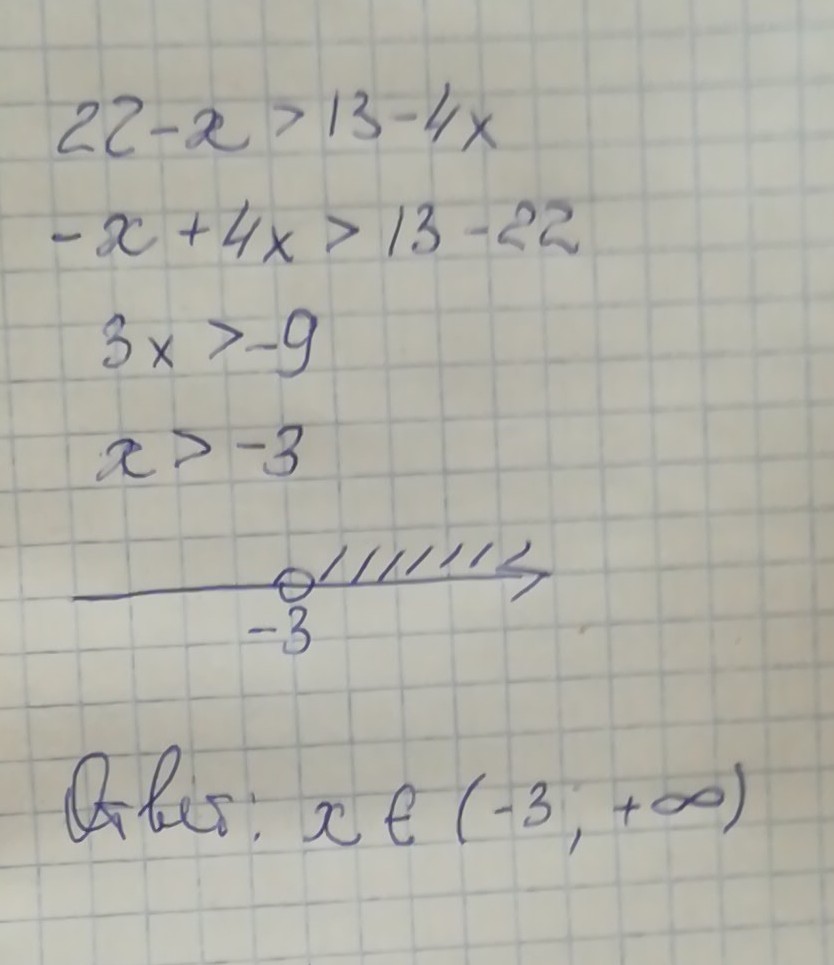 22-x > 13-4x
-x + 4x > 13 - 22
3x > -9
x > -3
-3
Ответ: x ∈ (-3; +∞)